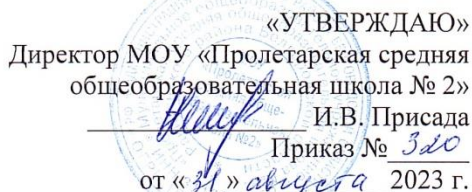 «УТВЕРЖДАЮ»
Директор МОУ «Пролетарская средняя
общеобразовательная школа № 2»
И.В. Присада
Приказ № 320
от «31» августа 2023 г.